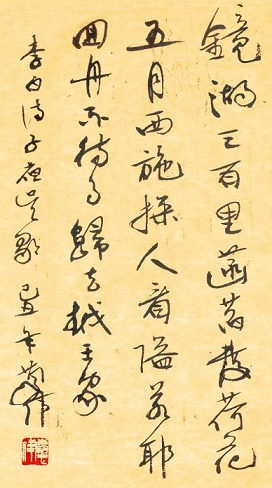 鏡湖三百里菡萏發荷花
五月西施採人看隘若耶
囬舟不待月歸去越王家
李白詩子夜吴歌 己丑年